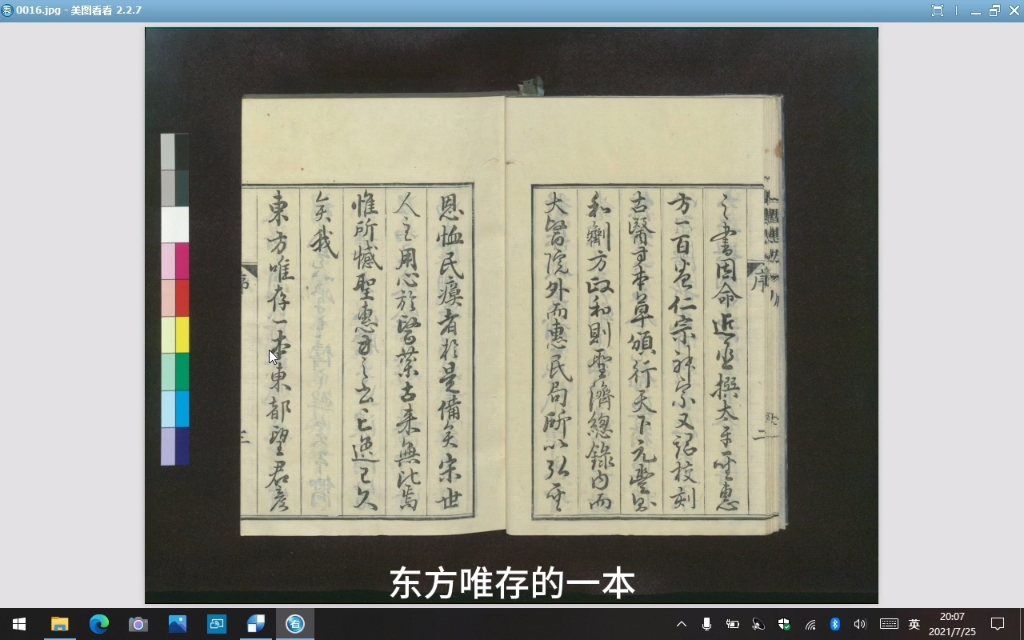 0016.jpg - 美图看看 2.2.7
之書因命近臣撰太平聖惠
方一百卷仁宗神宗又詔校刻
古醫方本草頒行天下元豊則
和劑方政和則聖濟總錄内而
大醫院外而惠民局所以弘聖
恩恤民瘼者於是備矣宋世
人主用心於醫藥古来無比焉
惟所憾聖惠方之書亡逸已久
矣我
東方唯存一本東都望君彦
序
二
三
东方唯存的一本
英
20:07
2021/7/25